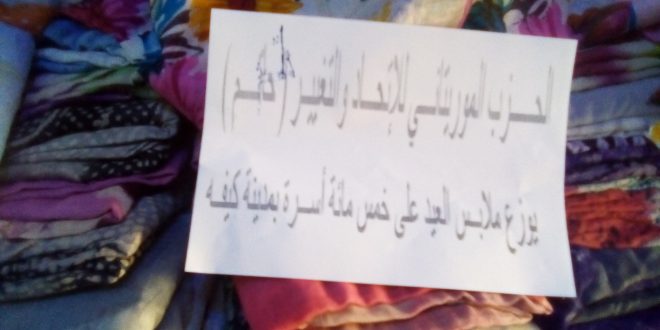 الحزب الموريتاني للإتحاد والتغيير (حاتم)
يوزع ملابس العيد على خمس مائة أسرة بمدينة كيفه